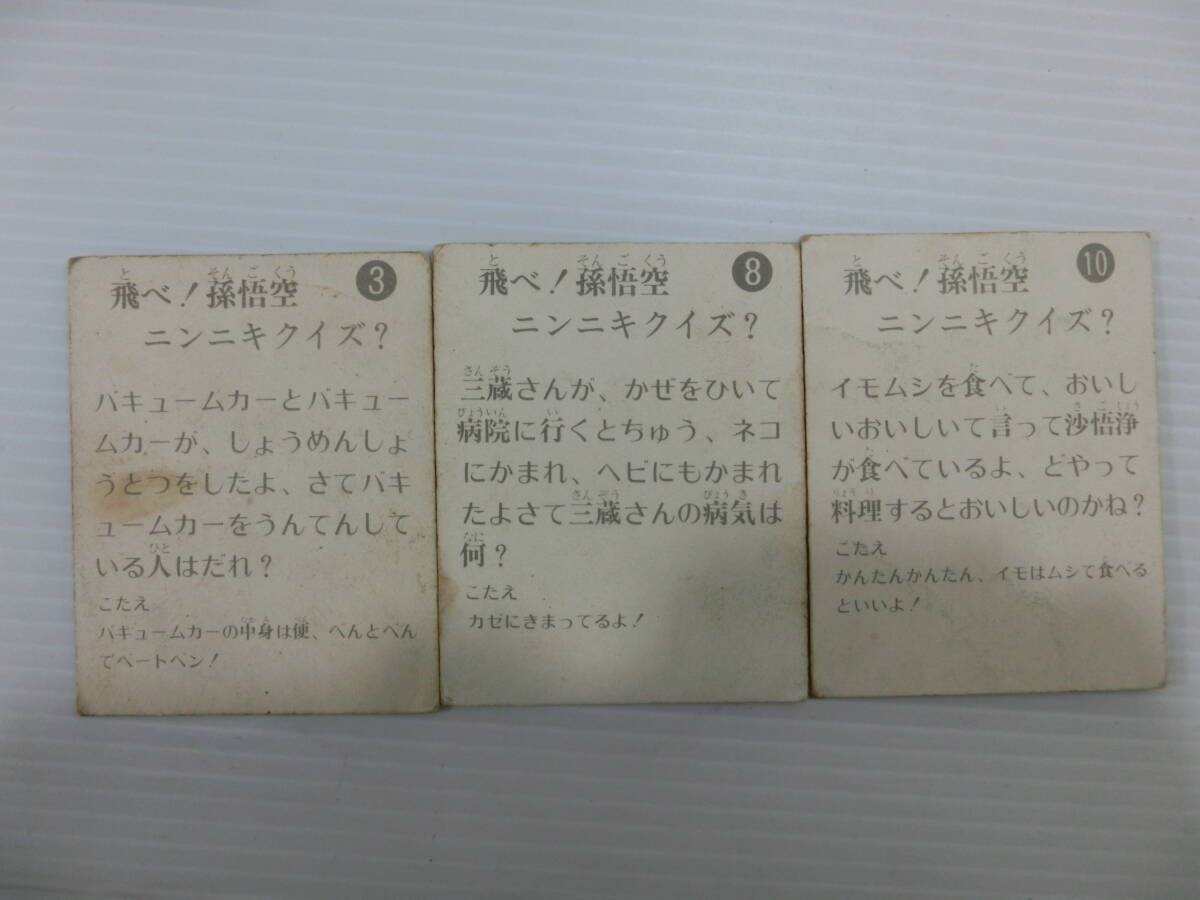 飛べ!孫悟空 3
ニンニキクイズ?
バキュームカーとバキュー
ムカーが、しょうめんしょ
うとつをしたよ、さてバキ
ュームカーをうんてんして
いる人はだれ?
こたえ
バキュームカーの中身は便、べんとべん
でベートベン!
飛べ!孫悟空 8
ニンニキクイズ?
三蔵さんが、かぜをひいて
病院に行くとちゅう、ネコ
にかまれ、ヘビにもかまれ
たよさて三蔵さんの病気は
何?
こたえ
カゼにきまってるよ!
飛べ!孫悟空 10
ニンニキクイズ?
イモムシを食べて、おいし
いおいしいて言って沙悟浄
が食べているよ、どやって
料理するとおいしいのかね?
こたえ
かんたんかんたん、イモはムシて食べる
といいよ!